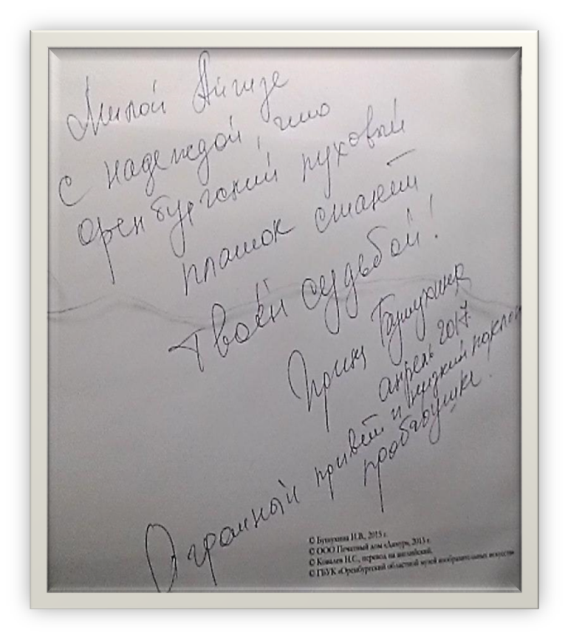 Милой Айгизе
с надеждой, что
оренбургский пуховый
платок станет
твоей судьбой!
Ирина Бушухина
апрель 2017.
Огромный привет и низкий поклон
прабабушке.
© Бушухина И.В., 2015 г.
© ООО Печатный дом «Димур», 2015 г.
© Ковалев Н.С., перевод на английский.
© ГБУК «Оренбургский областной музей изобразительных искусств